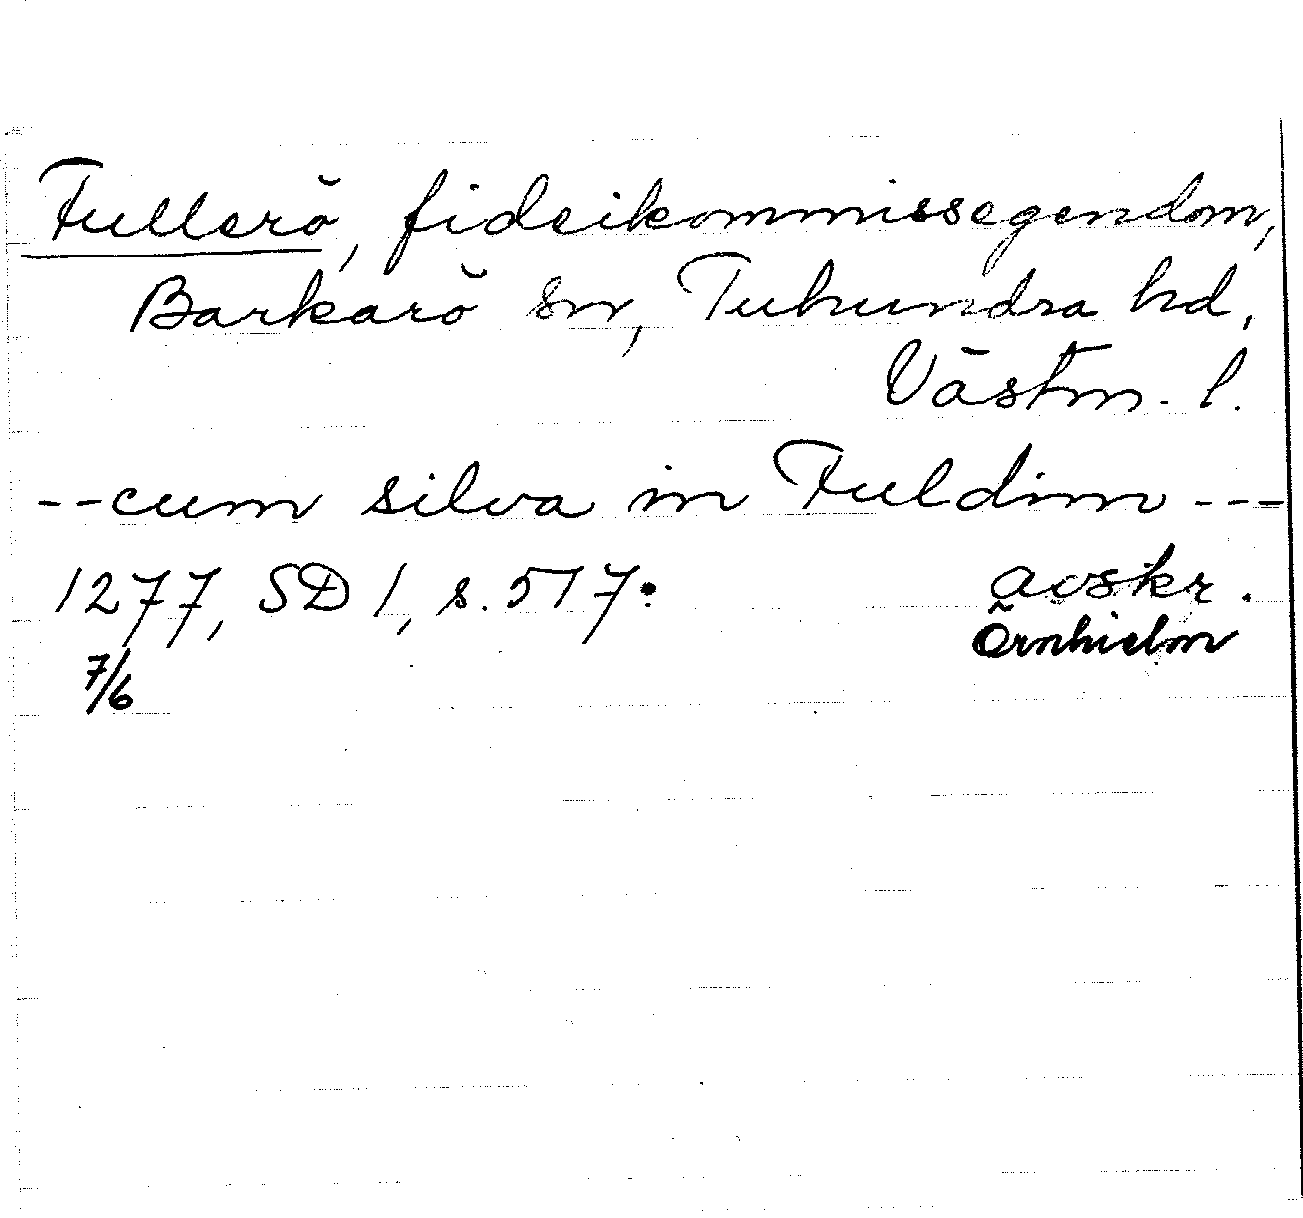 Fullerö, fideikommissegendom,
Barkarö sn, Tuhundra hd,
Västm. l.
--cum silva in Fuldinn---
1277, SD 1, s. 517: avskr.
7/6 Örnhielm